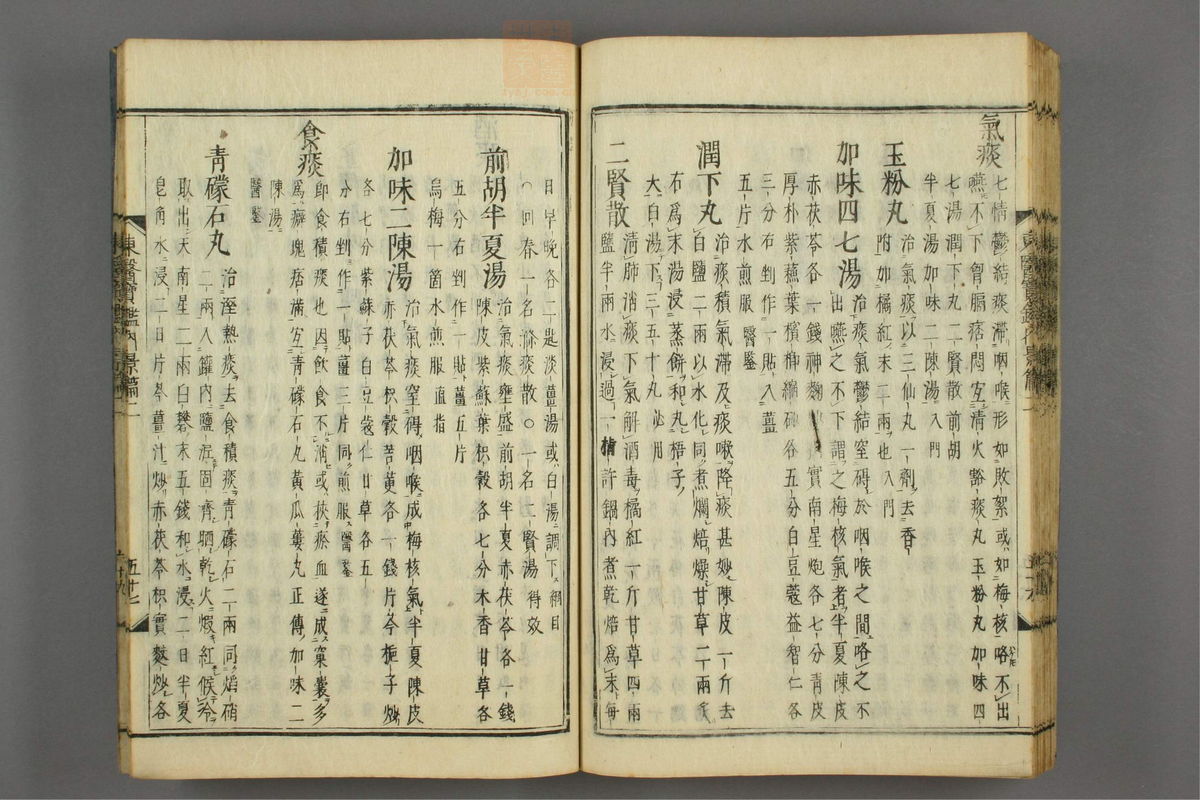 氣痰
七情鬱結痰滯咽喉形如敗絮或如梅核咯不出
嚥不下胷膈痞悶宜清火豁痰丸玉粉丸加味四
七湯潤下丸二賢散前胡
半夏湯加味二陳湯入門
玉粉丸
治氣痰以三仙丸一劑去香
附加橘紅末二兩也入門
加味四七湯
治痰氣鬱結窒碍於咽喉之間咯之不
出嚥之不下謂之梅核氣者半夏陳皮
赤茯苓各一錢神麴
枳實南星炮各七分青皮
厚朴紫蘓葉檳榔縮砂各五分白豆蔻益智仁各
三分右剉作一貼入薑
五片水煎服醫鑒
潤下丸
治痰積氣滯及痰嗽降痰甚妙陳皮一斤去
白鹽二兩以水化同煮爛焙燥甘草二兩灸
右爲末湯浸蒸餠和丸梧子
大白湯下三五十丸必用
二賢散
淸肺消痰下氣解酒毒橘紅一斤甘草四兩
鹽半兩水浸過一指許鍋內煮乾焙爲末每
日早晚各二匙淡薑湯或白湯調下綱目
○回春一名滌痰散○一名二賢湯得效
前胡半夏湯
治氣痰壅盛前胡半夏赤茯苓各一錢
陳皮紫蘇葉枳殼各七分木香甘草各
五分右剉作一貼薑五片
烏梅一箇水煎服直指
加味二陳湯
治氣痰窒碍咽喉成梅核氣半夏陳皮
赤茯苓枳殼菩黄各一錢片芩梔子炒
各七分紫蘇子白豆蔻仁甘草各五
分右剉作一貼薑三片同煎服醫鑒
食痰
卽食積痰也因飮食不消或挾瘀血遂成窠囊多
爲癖塊痞滿宜青礞石丸黃瓜蔞丸正傳加味二
陳湯
醫鑒
靑礞石丸
治溼熱痰去食積痰青礞石二兩同焰硝
二兩入罐內鹽泥固齊晒乾火煆紅候冷
取出天南星二兩白礬末五錢和水浸二日半夏
皂角水浸二日片芩薑汁炒赤茯苓枳實麩炒各
東醫寶鑑內景篇二
五十七